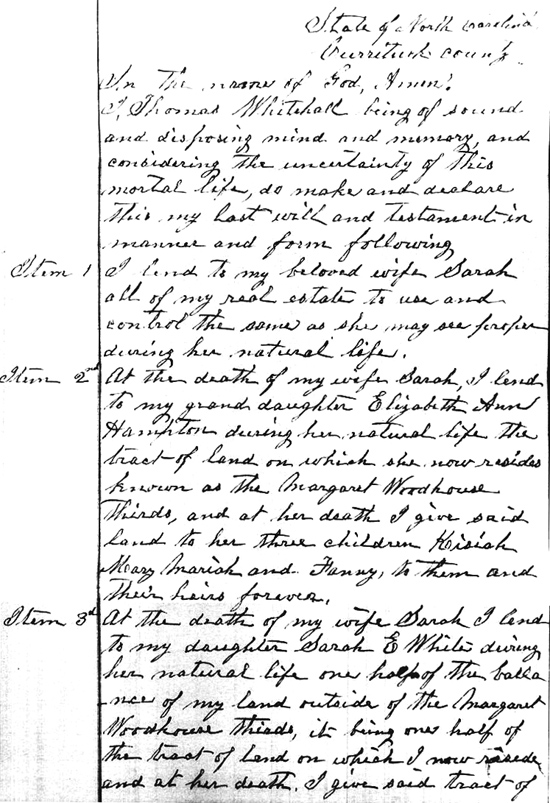 State of North Carolina
Currituck county
In the name of God, Amen.
I, Thomas Whitehall being of sound
and disposing mind and memory, and
considering the uncertainty of this
mortal life, do make and declare
this my last will and testament in
manner and form following
Item 1 I lend to my beloved wife Sarah
all of my real estate to use and
control the same as she may see proper
during her natural life.
Item 2nd At the death of my wife Sarah, I lend
to my grand daughter Elizabeth Ann
Hampton during her natural life the
tract of land on which she now resides
known as the Margaret Woodhouse
thirds, and at her death I give said
land to her three children Kisiah
Mary Mariah and Fanny, to them and
their hairs forever.
Item 3d At the death of my wife Sarah I lend
to my daughter Sarah E White during
her natural life one half of the balla
nce of my land outside of the Margaret
Woodhouse thirds, it being one half of
the tract of land on which I now reside
and at her death. I give said tract of